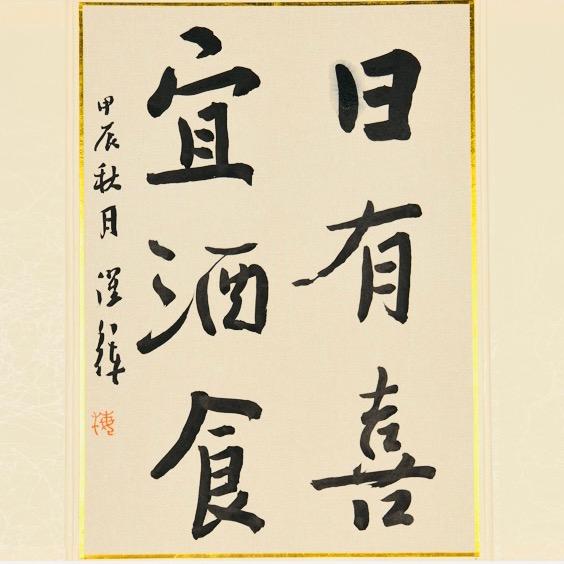 日有喜
宜酒食
甲辰秋月